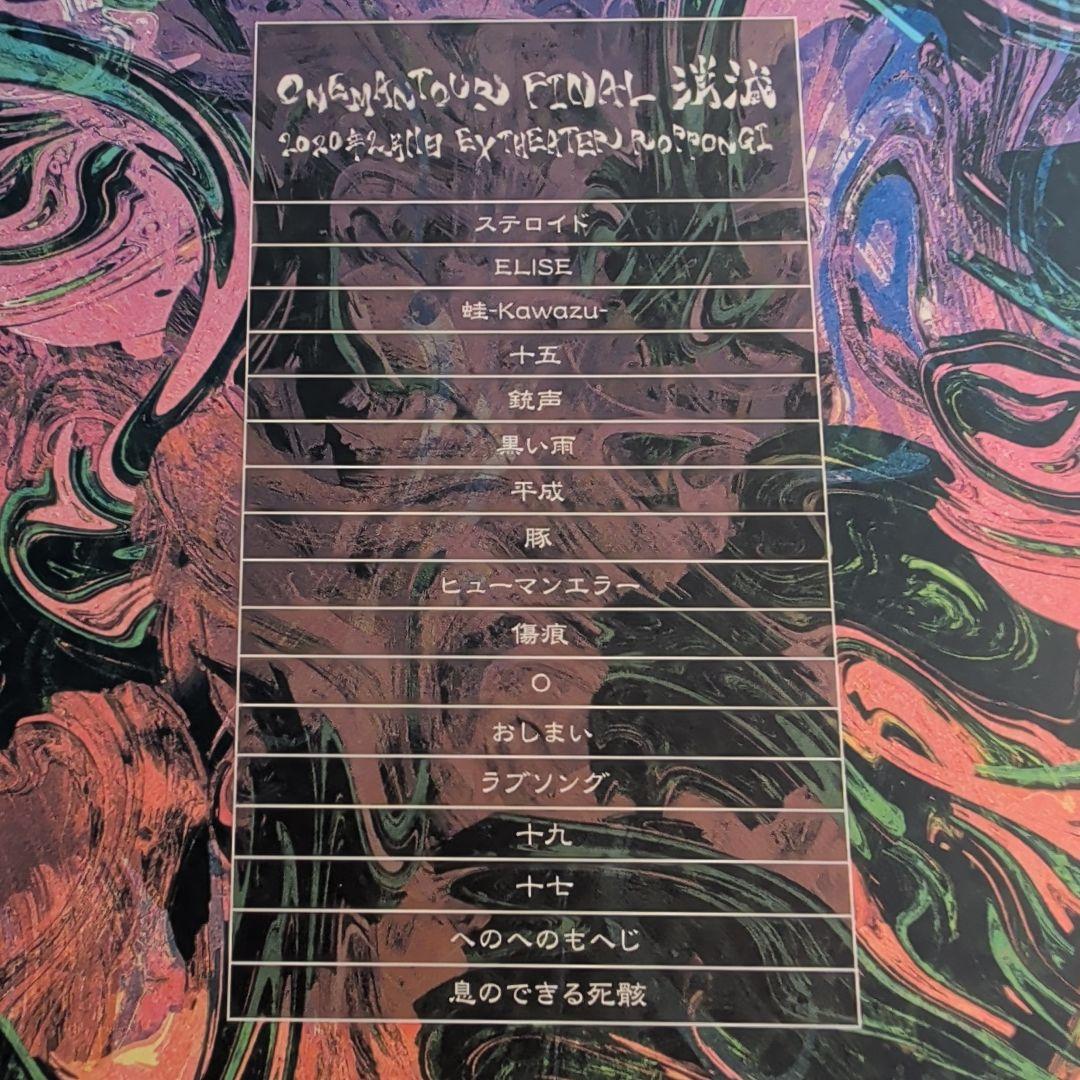 ONEMANTOUR FINAL 消滅
2020年2月11日 EX THEATER ROPPONGI
ステロイド
ELISE
蛙-Kawazu-
十五
銃声
黒い雨
平成
豚
ヒューマンエラー
傷痕
○
おしまい
ラブソング
十九
十七
へのへのもへじ
息のできる死骸